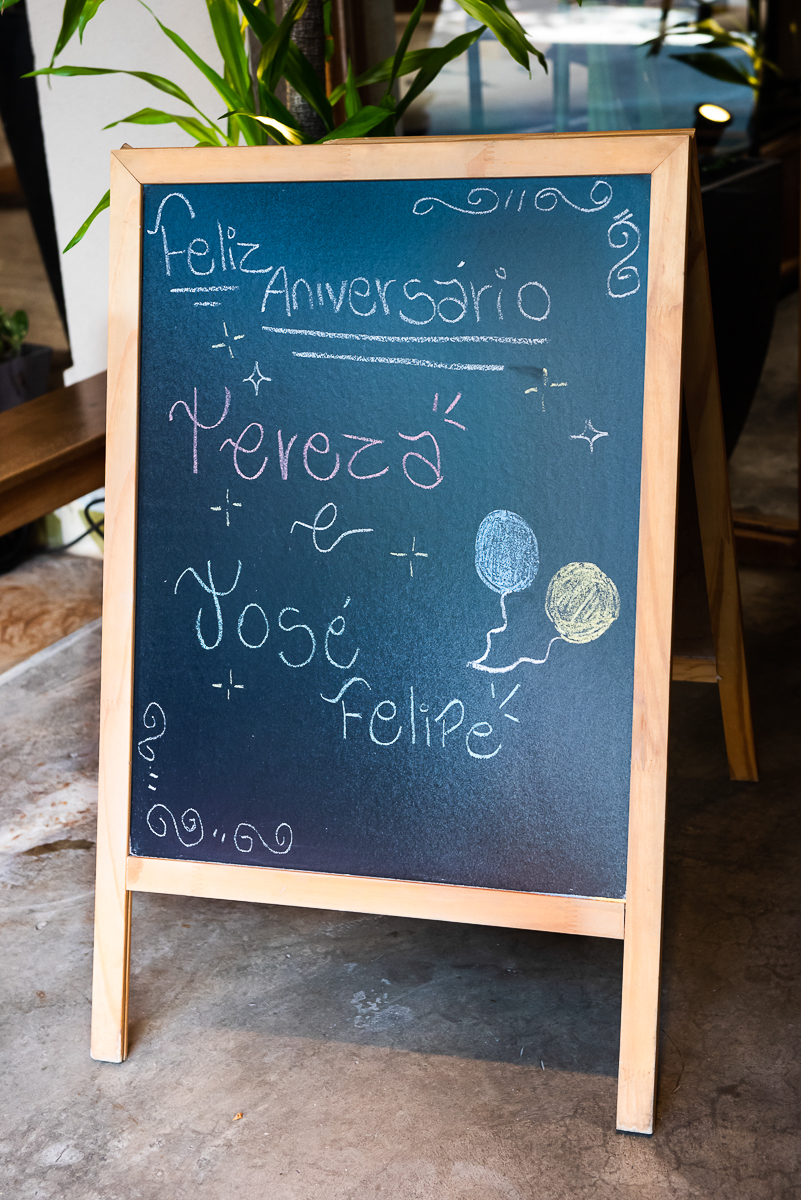 Feliz
Aniversário
Tereza
e
José
Felipe